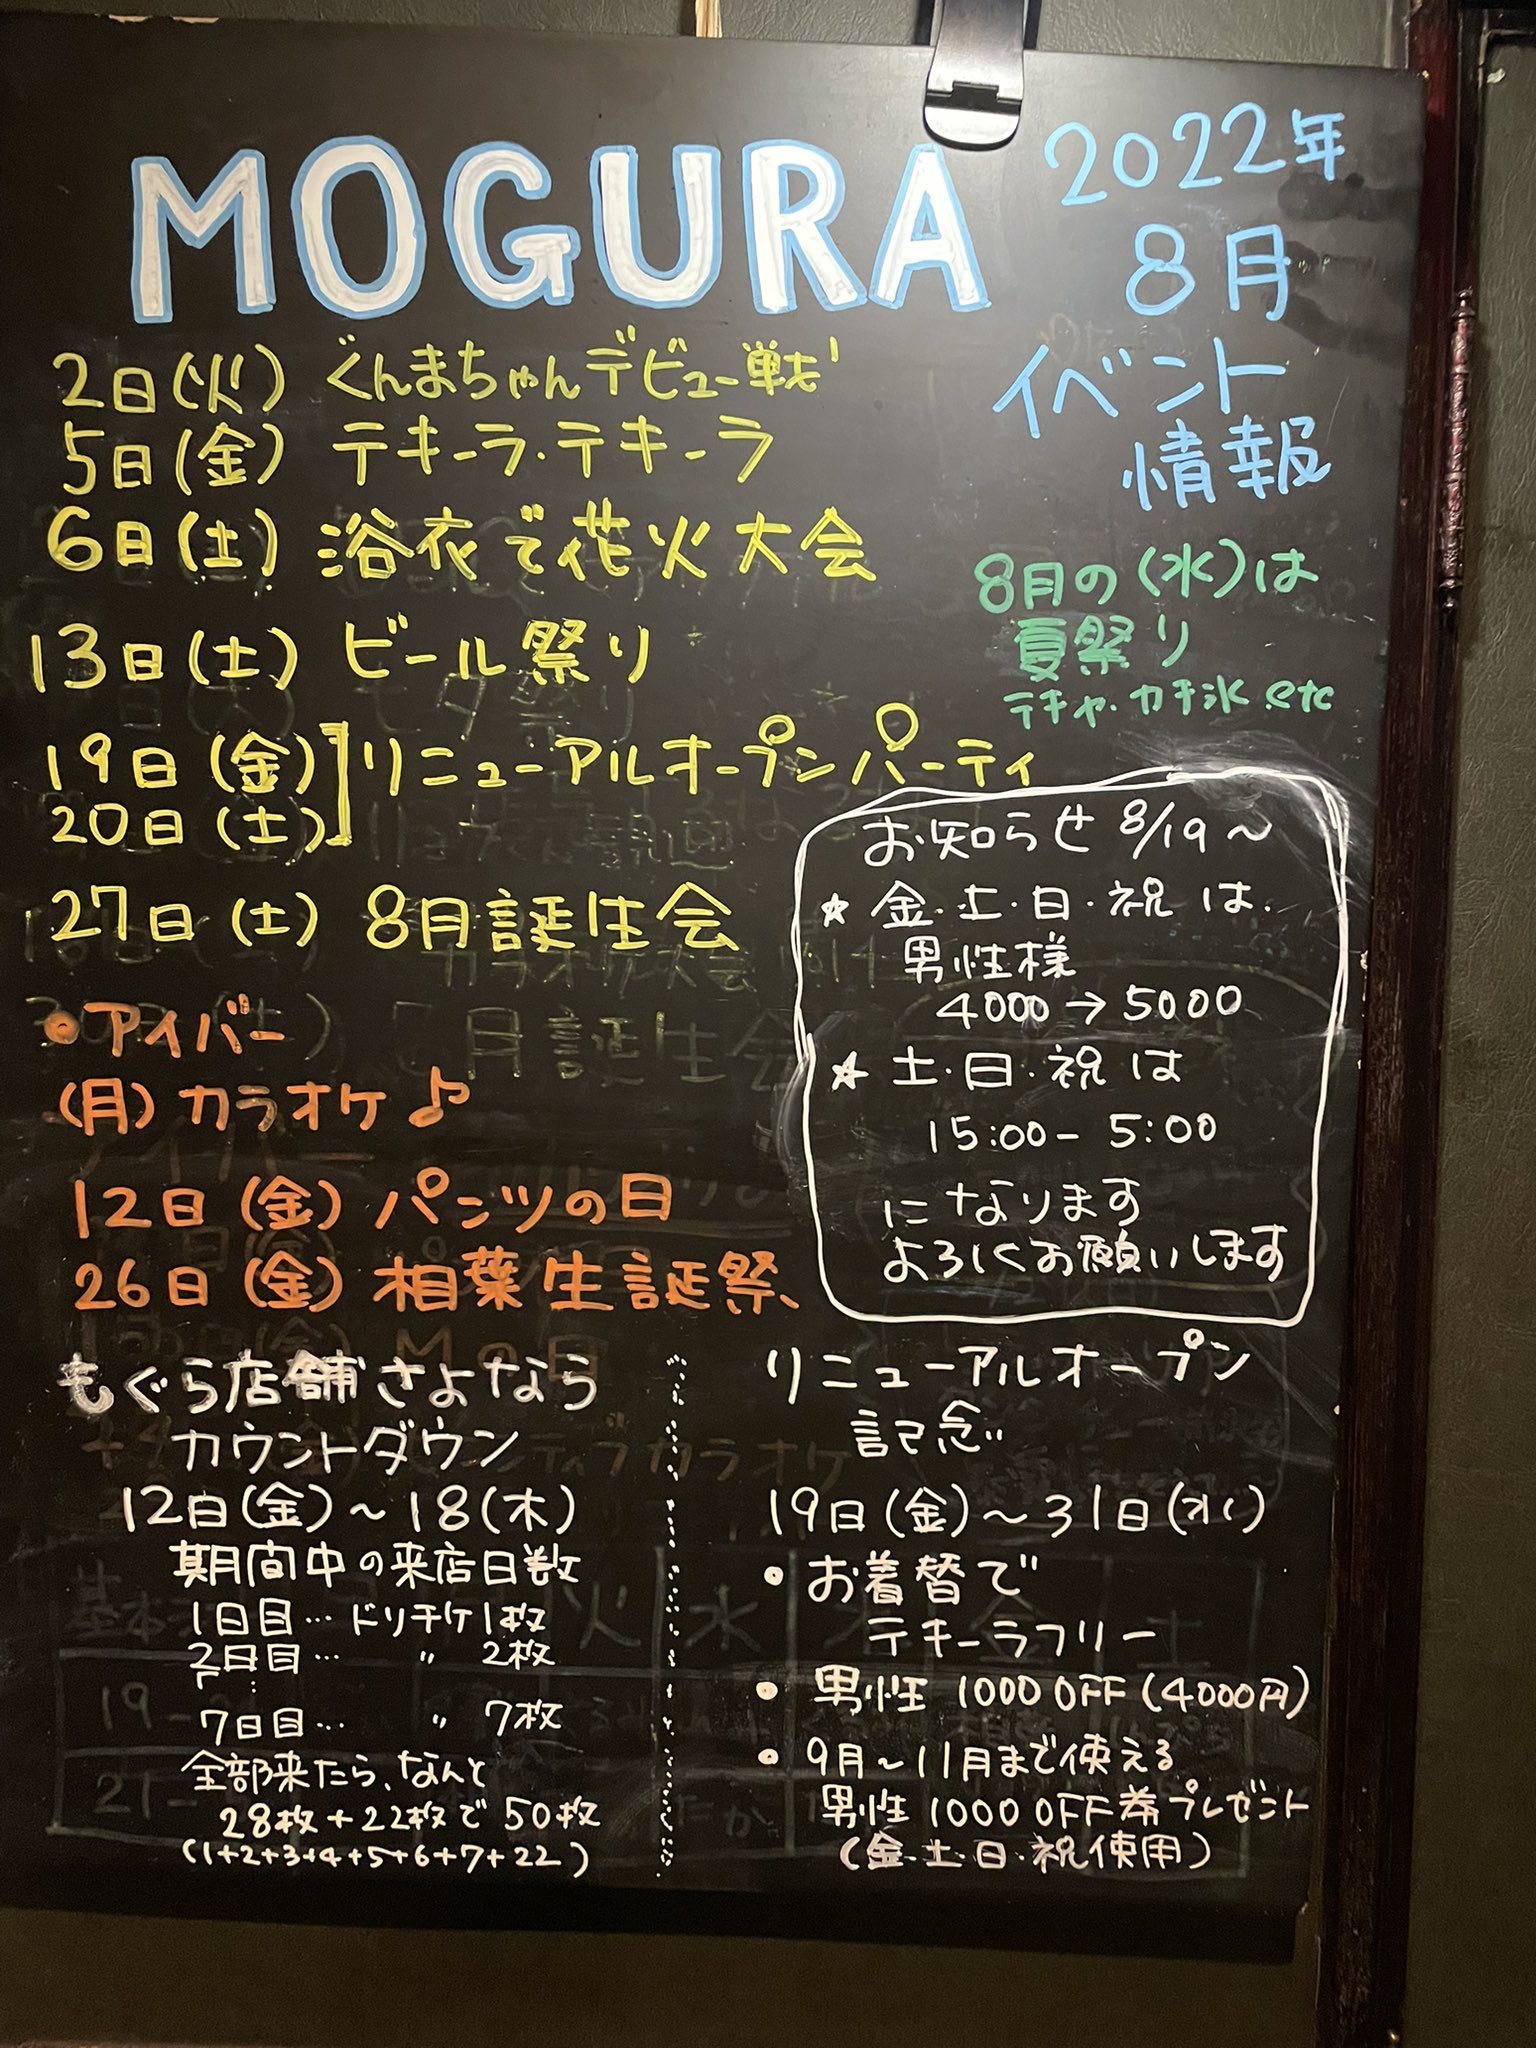 MOGURA
2022年
8月
イベント
情報
2日(火) ぐんまちゃんデビュー戦
5日(金) テキーラ・テキーラ
6日(土) 浴衣で花火大会
13日(土) ビール祭り
19日(金) リニューアルオープンパーティ
20日(土)
27日(土) 8月誕生会
8月の(水)は
夏祭り
テキヤ・カキ氷 etc
お知らせ 8/19〜
☆ 金・土・日・祝 は
男性様
4000→5000
☆ 土・日・祝は
15:00-5:00
になります
よろしくお願いします
・アイバー
(月) カラオケ♪
12日(金) パンツの日
26日(金) 相葉生誕祭
もぐら店舗さよなら
カウントダウン
12日(金)〜18(木)
期間中の来店日数
1日目… ドリチケ1枚
2日目… 〃 2枚
7日目… 〃 7枚
全部来たら、なんと
28枚+22枚で50枚
(1+2+3+4+5+6+7+22)
リニューアルオープン
記念
19日(金)〜31日(水)
・お着替で
テキーラフリー
・男性 1000 OFF (4000円)
・9月〜11月まで使える
男性 1000 OFF券プレゼント
(金・土・日・祝使用)